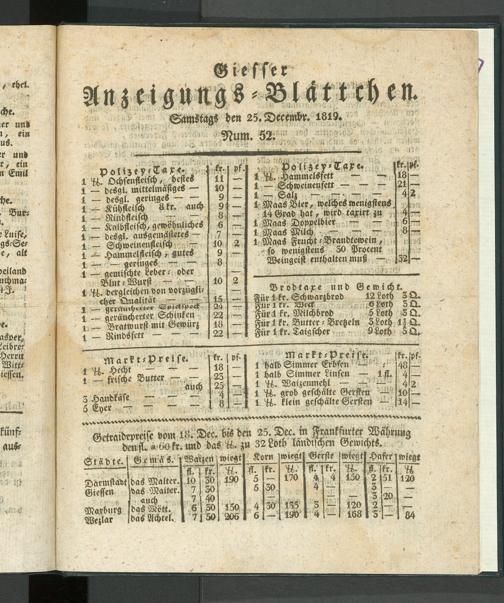 Giesser
Anzeigungs-Blättchen.
Samstags den 25. Decembr. 1819.
Num. 52.
Polizey-Taxe. kr. pf.
1 ℔. Ochsenfleisch, bestes 11 —
1 — desgl. mittelmäsiges — 10 —
1 — desgl. geringes — 9 —
1 — Kühfleisch 8 kr. auch 9 —
1 — Rindfleisch — 8 —
1 — Kalbfleisch, gewöhnliches 6 —
1 — desgl. ausgemästetes 7 —
1 — Schweinenfleisch — 10 2
1 — Hammelfleisch, gutes 9 —
1 — — geringes — 8 —
1 — gemischte Leber- oder
Blut-Wurst — — 10 2
1 ℔. dergleichen von vorzügli-
cher Qualität 15 —
1 — geräucherter Speispeck 24 —
1 — geräucherter Schinken 22 —
1 — Bratwurst mit Gewürz 18 —
1 — Rindsfett — — 22 —
Polizey-Taxe. kr. pf.
1 ℔. Hammelsfett — 18 —
1 — Schweinenfett — 21 —
1 — Salz — — 4 2
1 Maas Bier, welches wenigstens
14 Grad hat, wird taxirt zu 4 —
1 Maas Doppelbier — 6 —
1 Maas Milch — 8 —
1 Maas Frucht-Brandewein,
so wenigstens 30 Procent
Weingeist enthalten muß 32 —
Brodtaxe und Gewicht.
Für 1 kr. Schwarzbrod 12 Loth 3 Q.
Für 1 kr. Weck 6 Loth 3 Q.
Für 1 kr. Milchbrod 5 Loth 3 Q.
Für 1 kr. Butter-Bretzeln 3 Loth 1½ Q.
Für 1 kr. Taigscher 9 Loth 3 Q.
Markt-Preise. kr. pf.
1 ℔. Hecht — — 18 —
1 — frische Butter — 23 —
auch 25 —
3 Handkäse — — 4 —
5 Eyer — — 8 —
Markt-Preise. kr. pf.
1 halb Simmer Erbsen — 48 —
1 halb Simmer Linsen — 1 fl. 4 —
1 ℔. Waizenmehl — — 4 2
1 ℔. grob geschälte Gersten 10 —
1 ℔. klein geschälte Gersten — 14 —
Getraidepreise vom 18. Dec. bis den 25. Dec. in Frankfurter Währung
den fl. a 60 kr. und das ℔. zu 32 Loth ländischen Gewichts.
Städte. Gemäs. Waizen wiegt Korn wiegt Gerste wiegt Hafer wiegt
fl. kr. ℔. fl. kr. ℔. fl. kr. ℔. fl. kr. ℔.
Darmstadt das Malter. 10 30 190 5 — 170 4 4 150 2 51 120
Giessen das Malter. 7 50 5 30 4 — 3 —
auch 7 40 3 20
Marburg das Mött. 6 30 150 4 30 155 3 — 120 2 —
Wezlar das Achtel. 7 50 206 6 — 190 4 — 168 3 — 84